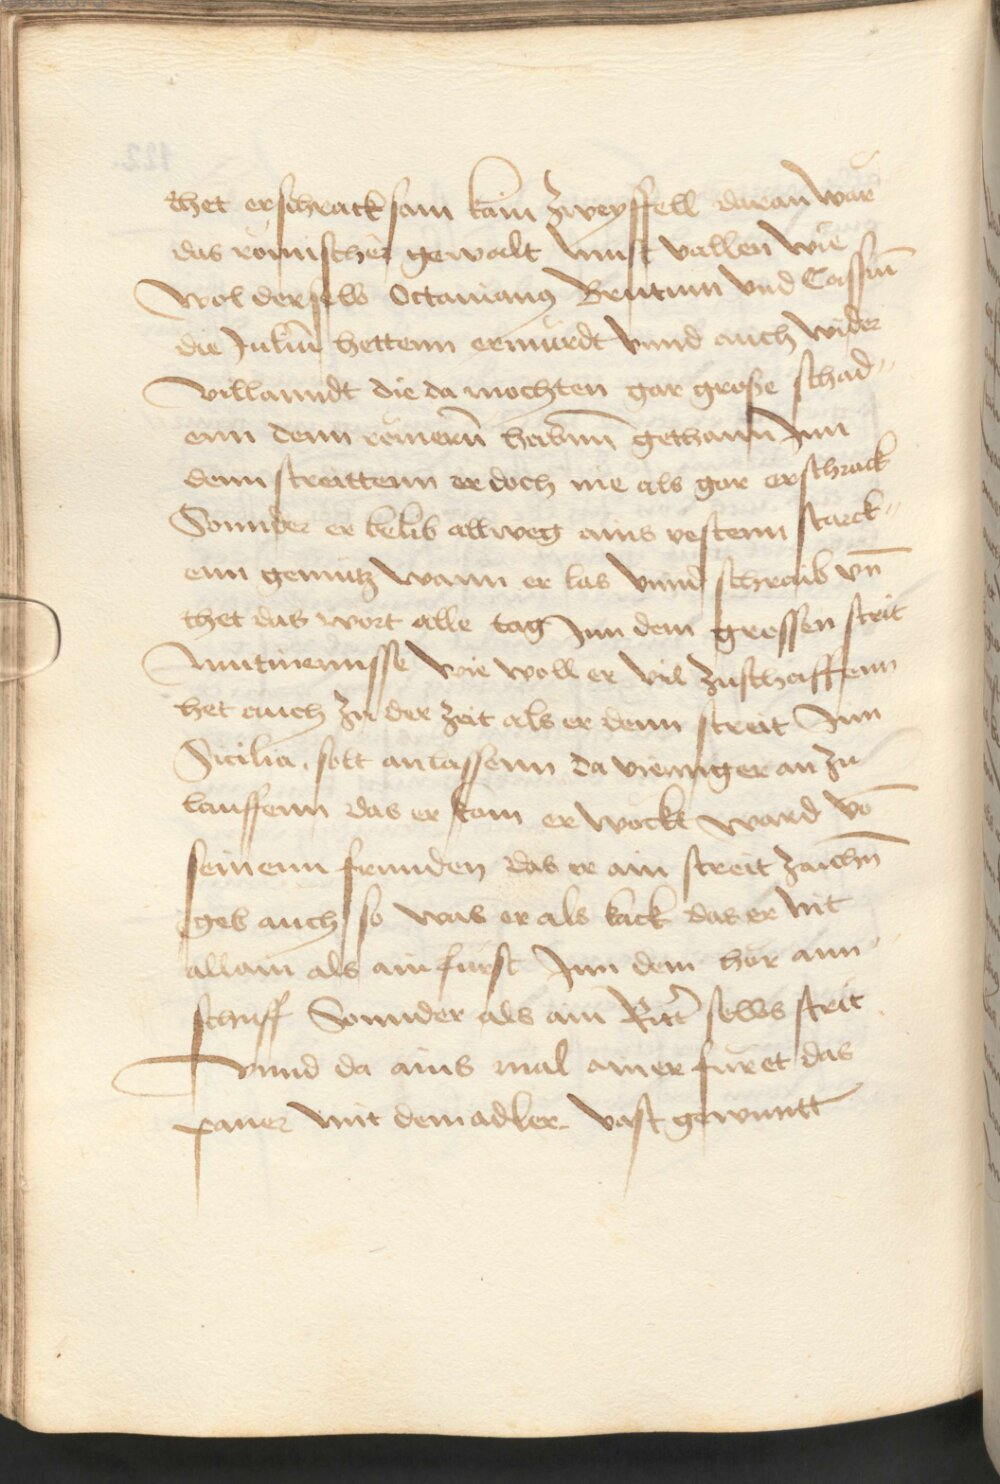 thet erschrack sam kain zweyffell daran war
das römischer gewalt must vallen wie
wol derselb Octauianus Brutum vnd Cassiū
die Juliū hettenn ermürdt vnnd auch wider
villanndt die da mochten gar große schad„
enn denn römerñ habnñ gethann Jnn
denn streittenn er doch nie als gar erschrack
Sonnder er belib allweg ains vestenn starck„
enn gemütz wann er las vnnd schraib vñ
thet das wort alle tag Jnn dem grossen streit
Mutinennsse wie woll er vil zuschaffenn
het auch zu der zeit als er denn streit Jnn
Sicilia, solt anlassenn da vieng er an zu
lauffenn das er kam erwockt ward vō
seinenn freunden das er ain streit zaichñ
geb auch so was er als kack das er nit
allain als ain fürst Jnn dem hör ann
schuff Sonnder als ain Ritt' selbs strit
Vnnd da ains mal ainer furet das
paner mit dem adler. vast gewuntt